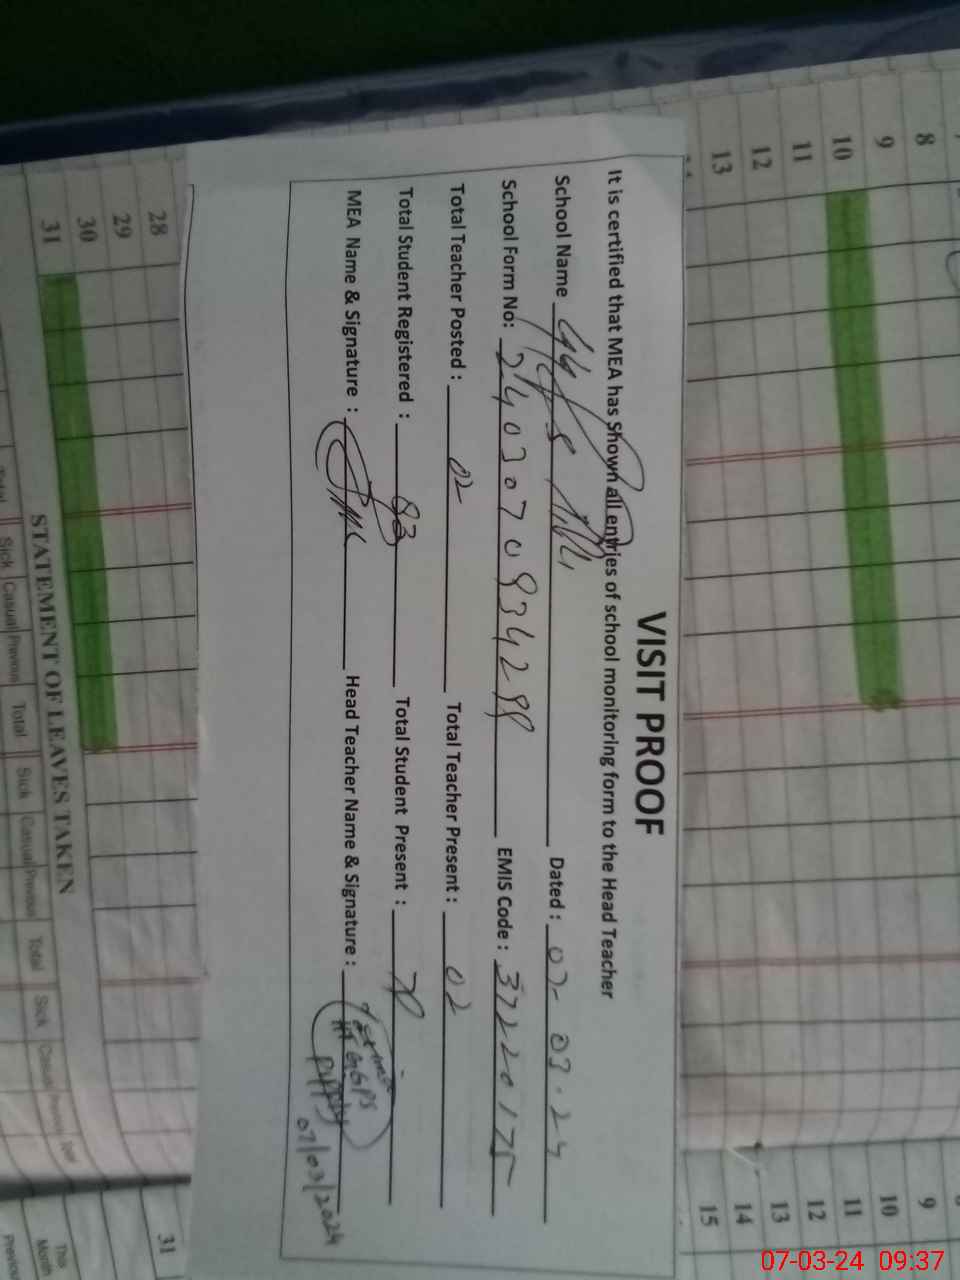 VISIT PROOF
It is certified that MEA has Shown all entries of school monitoring form to the Head Teacher
School Name GGPS Dated : 07-03-24
School Form No: 2403070934288 EMIS Code : 37220175
Total Teacher Posted : 02 Total Teacher Present : 02
Total Student Registered : 83 Total Student Present : 70
MEA Name & Signature : Head Teacher Name & Signature :
GGPS
07/03/2024
8
9
10
11
12
13
28
29
30
31
STATEMENT OF LEAVES TAKEN
Total Sick Casual Previous Total Sick Casual Previous Total Sick Casual
9
10
11
12
13
14
15
31
This Month
Previous
07-03-24 09:37